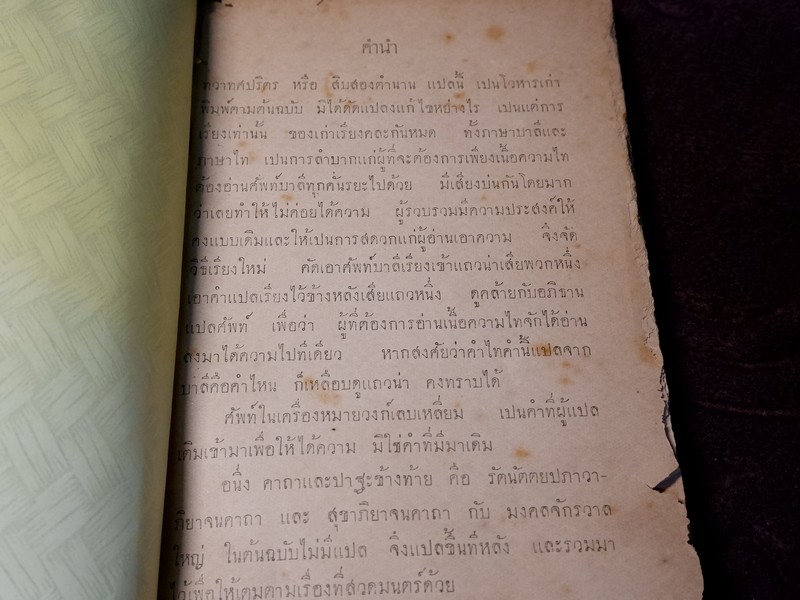 คำนำ
ทวาทศปริตร หรือ สิบสองตำนาน แปลนี้ เปนโวหารเก่า
พิมพ์ตามต้นฉบับ มิได้ดัดแปลงแก้ไขหย่างไร เปนแต่การ
เรียงเท่านั้น ของเก่าเรียงคละกันหมด ทั้งภาษาบาลีและ
ภาษาไท เปนการลำบากแก่ผู้ที่จะต้องการเพียงเนื้อความไท
ต้องอ่านศัพท์บาลีทุกคั่นระยะไปด้วย มีเสียงบ่นกันโดยมาก
ว่าเลยทำให้ไม่ค่อยได้ความ ผู้รวบรวมมีความประสงค์ให้
คงแบบเดิมและให้เปนการสดวกแก่ผู้อ่านเอาความ จึ่งจัด
วิธีเรียงใหม่ คัดเอาศัพท์บาลีเรียงเข้าแถวน่าเสียพวกหนึ่ง
เอาคำแปลเรียงไว้ข้างหลังเสียแถวหนึ่ง ดูคล้ายกับอภิธาน
แปลศัพท์ เพื่อว่า ผู้ที่ต้องการอ่านเนื้อความไทจักได้อ่าน
ลงมาได้ความไปทีเดียว หากสงศัยว่าคำไทคำนี้แปลจาก
บาลีคือคำไหน ก็เหลือบดูแถวน่า คงทราบได้
ศัพท์ในเครื่องหมายวงก์เลบเหลี่ยม เปนคำที่ผู้แปล
เติมเข้ามาเพื่อให้ได้ความ มิใช่คำที่มีมาเดิม
อนึ่ง คาถาและปาฐะข้างท้าย คือ รัตนัตตยปภาวา-
ภิยาจนคาถา และ สุขาภิยาจนคาถา กับ มงคลจักรวาล
ใหญ่ ในต้นฉบับไม่มีแปล จึ่งแปลขึ้นทีหลัง และรวมมา
ไว้เพื่อให้เตมตามเรื่องที่สวดมนตร์ด้วย